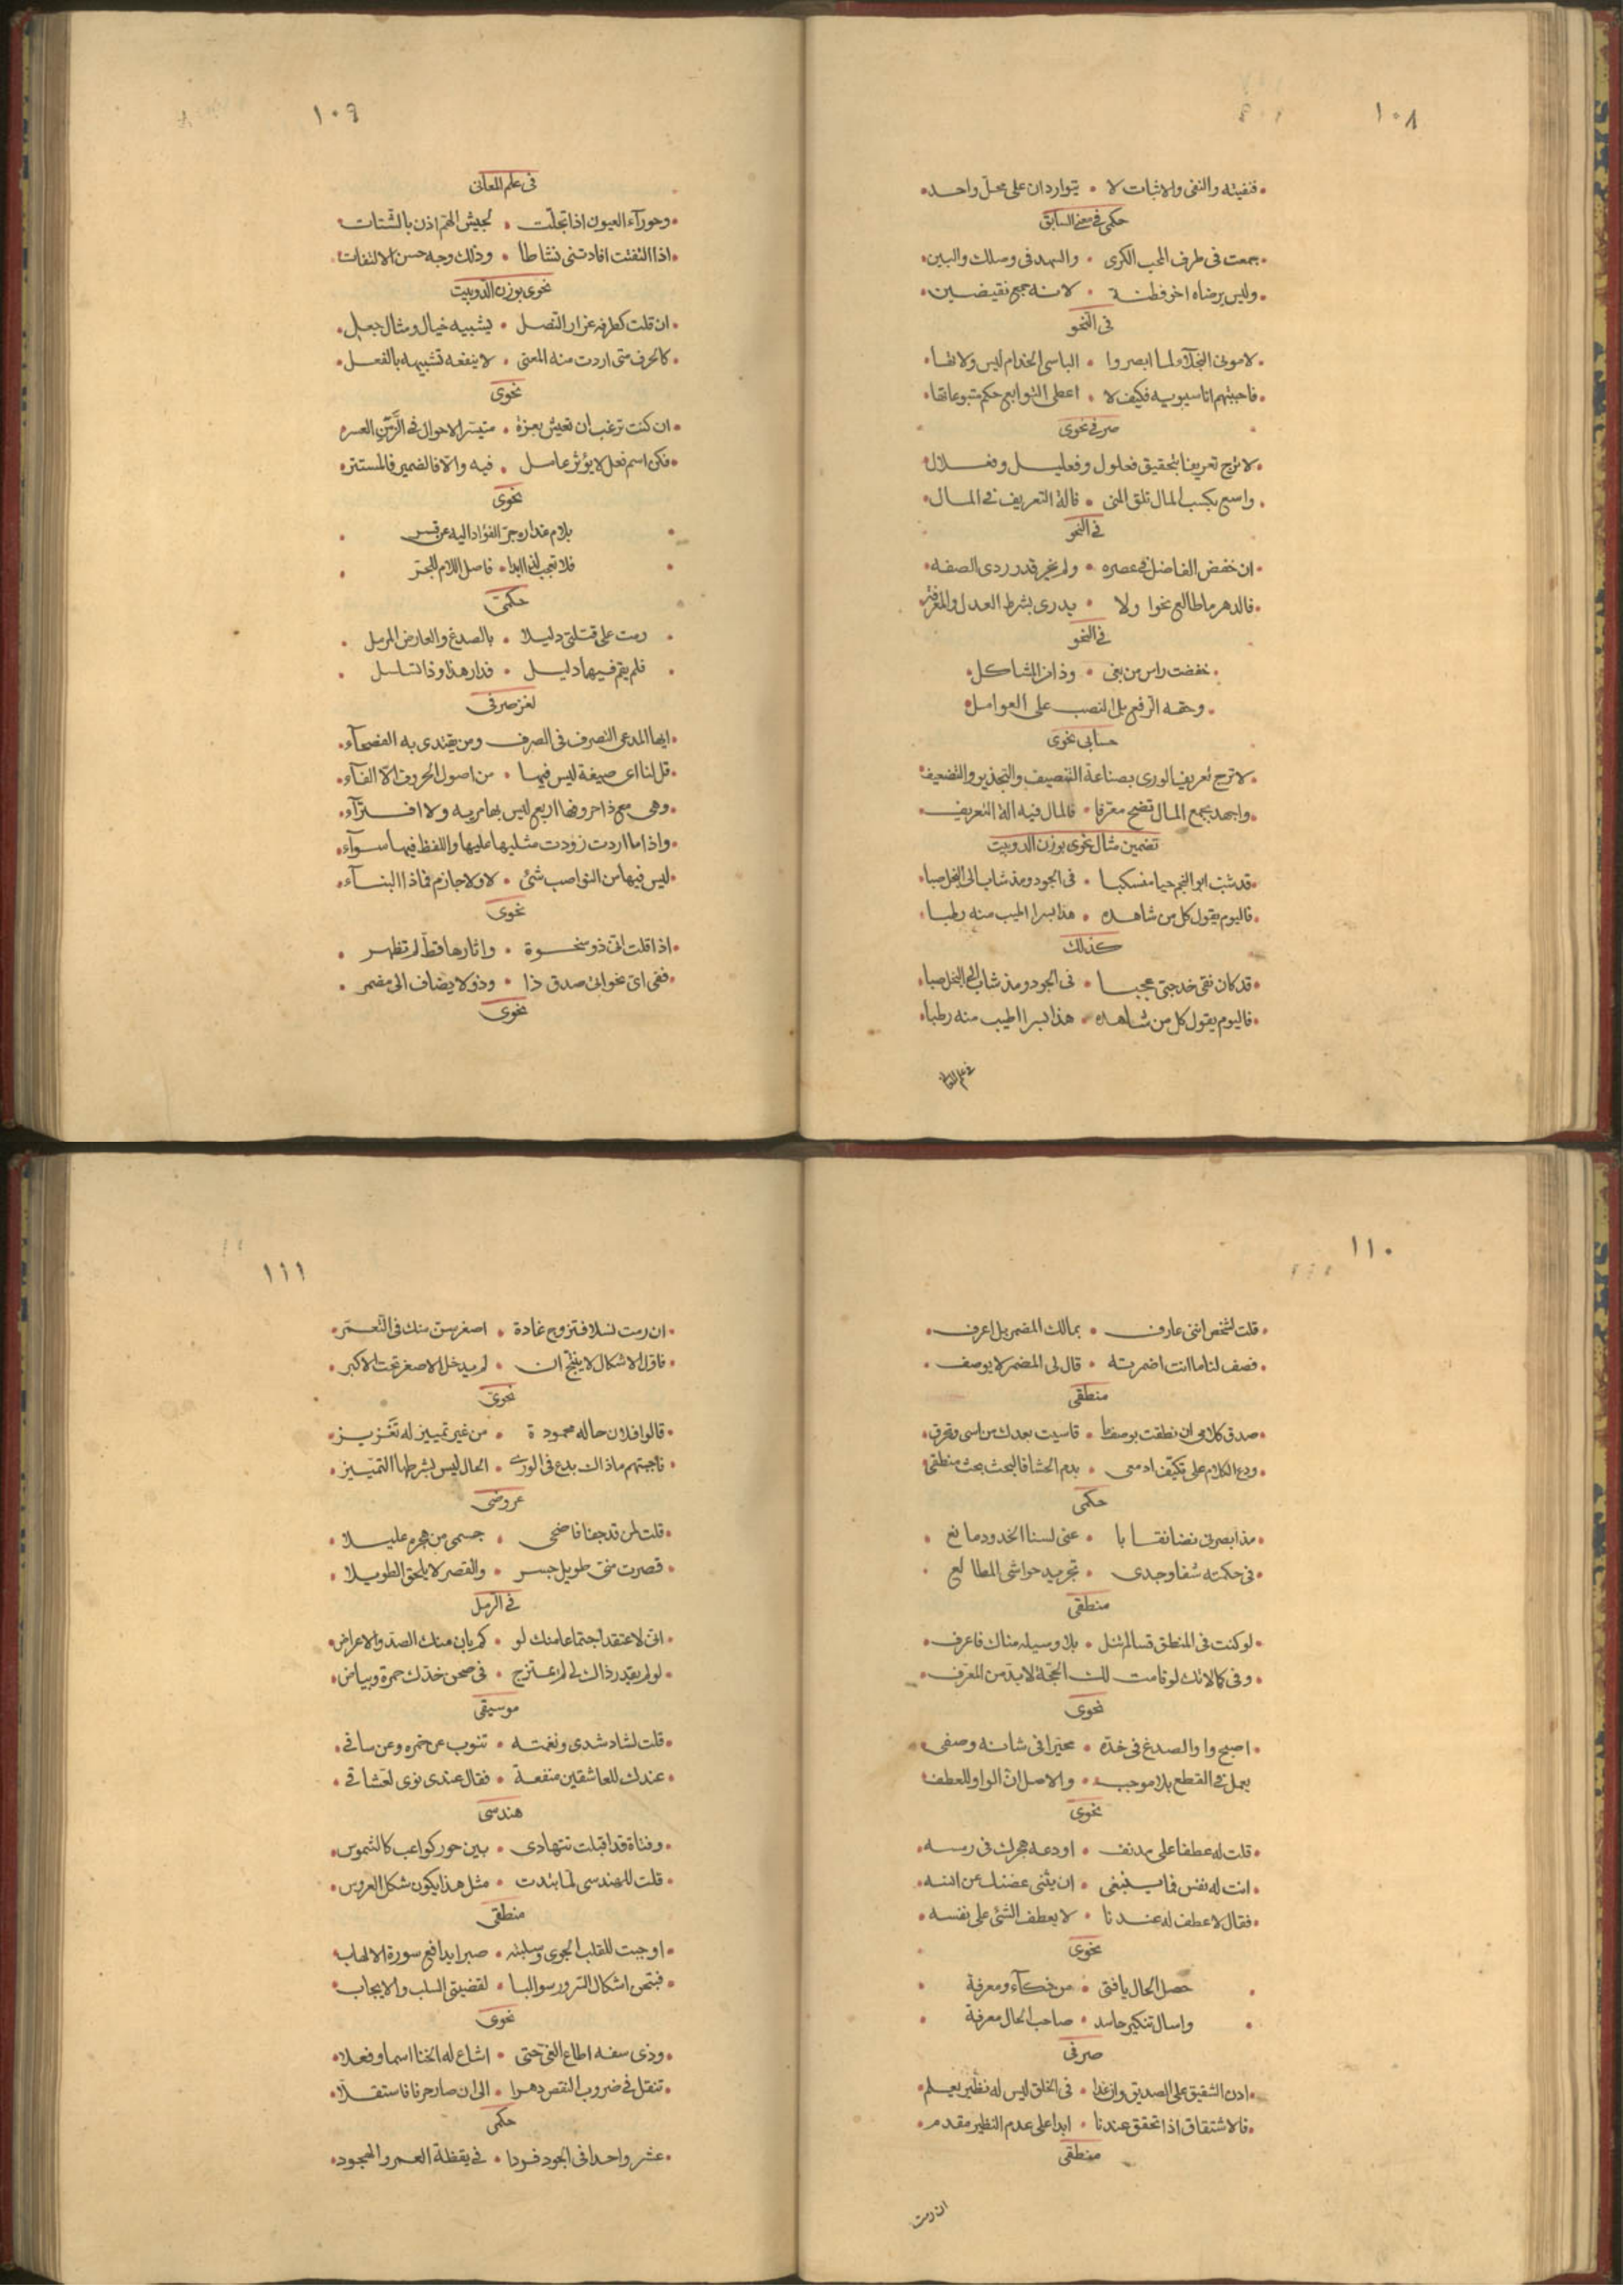 ١٠٨
فنفيته والنفى والاثبات لا • يتواردان على محل واحد
حكمى فى معنى السابق
جمعت فى طرف المحب الكرى • والسهد فى وصلك والبين
وليس يرضاه اخو فطنة • لانه جمع نقيضين
فى النحو
لاموتى ابصروا • الباسى الخدام ليس ولاتها
فاجبتهم انا سيبويه فكيف لا • اعطى التوابع حكم متبوعاتها
صرفى نحوى
لا ترج تعريفا بتحقيق فعلول وفعليل وفعلال
واسع بكسب المال تلق المنى • فالة التعريف فى المال
فى النحو
ان خفض الفاضل فى عصره • ولم يجر قدر ردى الصفه
فالدهر ما طالع نحوا ولا • يدرى بشرط العدل والمعرفة
فى النحو
خفضت راس من بغى • وذا من المشاكل
وحقه الرفع بل النصب على العوامل
حسابى نحوى
لا ترج تعريف الورى بصناعة التنصيف والتجذير والتضعيف
واجهد بجمع المال تضح معرفا • فالمال فيه الة التعريف
تضمين مثال نحوى بوزن الدوبيت
قد شبت ابو النجم حيا منسكبا • فى الجود ومذ شاب الى البخل صبا
فاليوم يقول كل من شاهده • هذا بسرا اطيب منه رطبا
كذلك
قد كان نقى خد حبى عجبا • فى الجود ومذ شاب الى البخل صبا
فاليوم يقول كل من شاهده • هذا بسرا اطيب منه رطبا
فى علم المعانى
١٠٩
فى علم المعانى
وحورآء العيون اذا تجلت • لجيش الهم اذن بالشتات
اذا التفتت افادتنى نشاطا • وذلك وجه حسن الالتفات
نحوى بوزن الدوبيت
ان قلت كطرفه غرار النصل • يشبيه خيال ومثال جعلى
كالحرف متى اردت منه المعنى • لا ينفعه تشبيهه بالفعل
نحوى
ان كنت ترغب ان تعيش بعزة • متيسر الاحوال فى الزمن العسر
فكن اسم فعل لا يؤثر عامل • فيه والا فالضمير فالمستتر
نحوى
بلام عذاره جر الفؤاد اليه عن قسر
فلا تعجب لذا ابدا • فاصل اللام للجر
حكمى
رمت على قتلتى دليلا • بالصدغ والعارض المرسل
فلم يقم فيهما دليل • فدار هذا وذا تسلسل
لغز صرفى
ايها المدعى التصرف فى الصرف ومن يقتدى به الفصحآء
قل لنا اى صيغة ليس فيها • من اصول الحروف الا الفآء
وهى مع ذا حروفها اربع ليس بها مريه ولا افترآء
واذا ما اردت زودت مثليها عليها واللفظ فيها سوآء
ليس فيها من النواصب شئ • لا ولا جازم فماذا البنآء
نحوى
اذا قلت انى ذو سخوة • واثارها قط لم تظهر
ففى اى نحو ائى صدق ذا • وذو لا يضاف الى مضمر
نحوى
١١٠
قلت لشخص اننى عارف • بمالك المضمر بل اعرف
فصف لنا ما انت اضمرته • قال لى المضمر لا يوصف
منطقى
صدق كلامى ان نطقت بوصف ما • قاسيت بعدك من اسى وتحرق
ودع الكلام على تكيف ادمعى • بدم الحشا فالبحث بحث منطقى
حكمى
مذ ابصرتى نضا نقابا • عنى لسنا الخدود مانع
فى حكمته شفا وجدى • تجريد حواشى المطالع
منطقى
لو كنت فى المنطق قسا لم تنل • بلا وسيلة مناك فاعرف
وفى كمالاتك لو قامت لك الحجة لا بد من المعرف
نحوى
اصبح واو الصدغ فى خده • محيرا فى شانه وصفى
يعمل فى القطع بلا موجب • والاصل ان الواو للعطف
نحوى
قلت له عطفا على مدنف • اودعه هجرك فى رمسه
انت له نفس فما ينبغى • ان ينثنى غصنك عن انسه
فقال لا عطف له عندنا • لا يعطف الشئ على نفسه
نحوى
حصل الحال يا فتى • من ذكآء ومعرفة
واسال تنكير حاسد • صاحب الحال معرفة
صرفى
ادن الشفيق على الصديق وان غدا • فى الخلق ليس له نظير يعلم
فالاشتقاق اذا تحقق عندنا • ابدا على عدم النظير مقدم
منطقى
ان رمت
١١١
ان رمت نسلا فتزوج غادة • اصغر سن منك فى التعمر
فاول الاشكال لا ينتج ان • لم يدخل الاصغر تحت الاكبر
نحوى
قالوا فلان حاله محمودة • من غير تمييز له تعزيز
فاجبتهم ماذاك بدع فى الورى • الحال ليس بشرطها التمييز
عروضى
قلت لمن قد جفا فاضحى • جسمى من هجره عليلا
قصرت منى طويل جسر • والقصر لا يلحق الطويلا
فى الرمل
انى لاعتقد اجتماعا منك لو • كم بان منك الصد والاعراض
لو لم يقدر ذاك لى لم يمتزج • فى صحن خدك حمرة وبياض
موسيقى
قلت لشاد شدى ونغمته • تنوب عن خمره وعن ساقى
عندك للعاشقين منفعة • فقال عندى نوى لعشاقى
هندسى
وفتاة قد اقبلت تتهادى • بين حور كواعب كالشموس
قلت للهندسى لما بدت • مثل هذا يكون شكل العروس
منطقى
اوجبت للقلب الجوى وسلبته • صبرا يدافع سورة الالهاب
فبتحمى اشكال السرور سوالبا • لقضيتى السلب والايجاب
نحوى
وذى سفه اطاع الغى حتى • اشاع له الخنا اسما وفعلا
تنقل فى ضروب النقص دهرا • الى ان صار حرفا فاستقلا
حكمى
عش واحدا فى الجود فردا • فى يقظة العمر والهجود